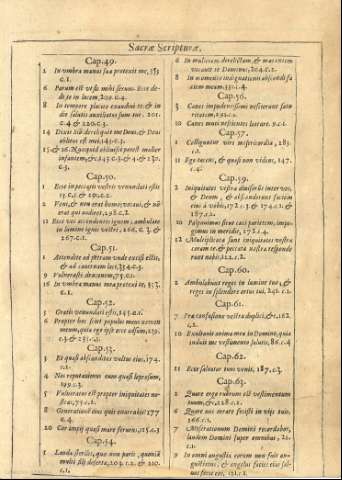 Sacræ Scripturæ.
Cap.49.
2 In vmbra manus suæ protexit me, 353
c.1.
6 Parum est vt sis mihi seruus. Ecce de-
di te in lucem, 209. c.4.
8 In tempore placito exaudiui te & in
die salutis auxiliatus sum tui, 201.
c.4 & 220. c.3.
14 Dixit Sion dereliquit me Deus, & Deus
oblitus est mei, 143. c.3.
15 & 16. Nunquid obliuisci potest mulier
infantem, &c 143. c.3 & 4. & 230.
c.3.
Cap.50.
1 Ecce in peccatis vestris venundati estis
2 Veni, & non erat homo, vocaui, & nō
erat qui audiret, 298. c.2.
11 Ecce vos accendentes ignem, ambulate
in lumine ignis vestri, 266. c. 3. &
267. c.1.
Cap.51.
1 Attendite ad petram vnde excisi estis,
& ad cauernam laci, 354. c.3.
9 Vulnerasti draconem, 75. c.1.
16 In vmbra manus meæ protexi te, 353.
c.1.
Cap.52.
3 Gratis venundati estis, 145. c.1.
6 Propter hoc sciet populus meus nomen
meum, quia ego ipse ecce adsum, 259.
Cap.53.
3 Et quasi absconditus vultus eius, 174.
c.1.
4 Nos reputauimus eum quasi leprosum,
199. c.3.
5 Vulneratus est propter iniquitates no-
stras, 75. c.1.
8 Generationē eius quis enarrabit 177
c.4.
20 Cor impij quasi mare feruens, 115. c.3
Cap.54.
1 Lauda sterilis, quæ non paris, quoniā
multi filij desertæ, 203. c.2. & 210.
c.1.
6 In mulierem derelictam, & mœrentem
vocauit te Dominus, 204. c.2.
8 In momento indignationis abscondi fa
ciem meam. 331. c.4.
Cap.56.
3 Canes impudentissimi nescierunt satu
ritatem, 192. c.1.
10 Canes muti nescientes latrare. 9. c.1.
Cap.57.
1 Colliguntur viri misericordiæ, 283.
c.1.
11 Ego tacens, & quasi non videns, 147.
c.4.
Cap.59.
2 Iniquitates vestræ diuiserūt inter vos,
& Deum, & absconderunt faciem
eius à vobis, 172. c. 3. & 174. c.1. &
187. c.2.
10 Palpauimus sicut cæci parietem, impe-
gimus in meridie, 172. c.4.
12 Multiplicatæ sunt iniquitates vestræ
coram te, & peccata nostra responde
runt nobis, 122. c.2.
Cap.60.
2 Ambulabunt reges in lumine tuo, &
reges in splendore ortus tui, 241. c.1.
Cap.61.
7 Præ confusione vestra duplici, &c. 182.
c.2.
10 Exultauit anima mea in Domino, quia
induit me vestimento salutis, 86. c.4
Cap.62
11 Ecce saluator tuus venit, 187. c.3.
Cap.63.
2 Quare ergo rubrum est vestimentum
tuum, &c. 128. c.1.
6 Quare nos errare fecisti in vijs tuis.
266. c.1.
7 Miserationum Domini recordabor,
laudem Domini super omnibus, 21.
c.1.
9 In omni angustia eorum non fuit an-
gustiatus, & angelus faciei eius sal-
uos fecit eos, 151. c.1.